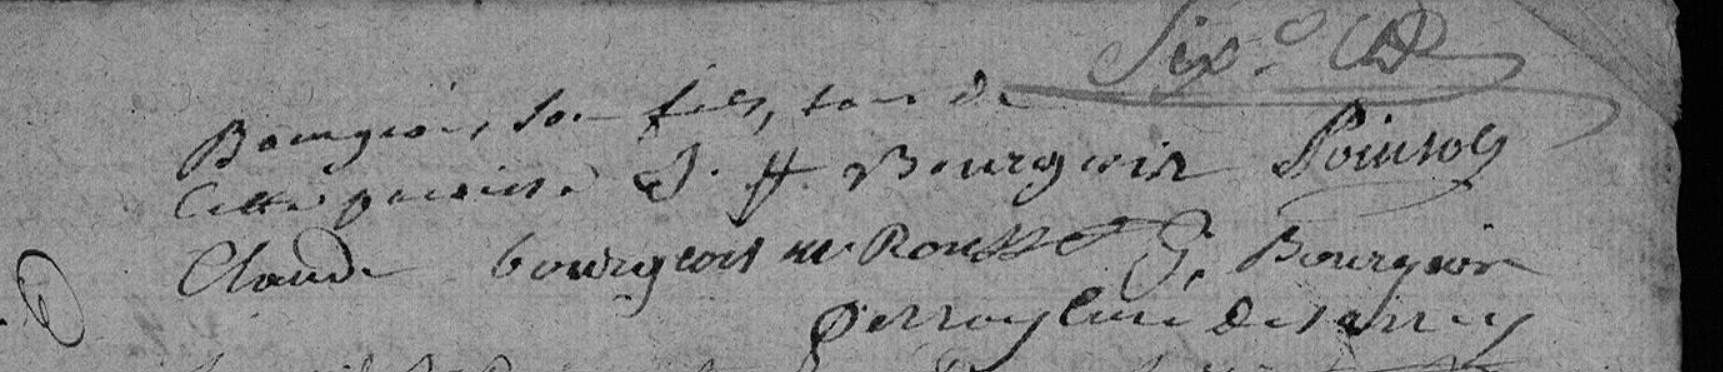 Six.e
Bourgeois, son fils, tous de
Cette paroisse J. H. Bourgeois Poinsot
Claude bourgeois m Rousset G. Bourgeois
Perroy Curé de sarrey